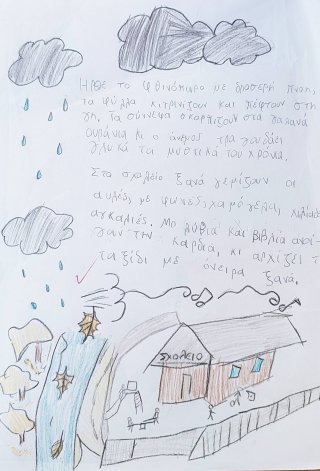 Ηρθε το φθινόπωρο με δροσερή πνοή,
τα φύλλα κιτρινίζουν και πέφτουν στη
γη. Τα σύννεφα σκορπίζουν στα γαλανά
ουράνια κι ο άνεμος τραγουδάει
γλυκά τα μυστικά του χρόνια.
Στο σχολείο ξανά γεμίζουν οι
αυλές, με φωνές, χαμόγελα, χιλιάδες
αγκαλιές. Μολύβια και βιβλία ανοί-
γουν την καρδιά, κι αρχίζει τ
ταξίδι με όνειρα ξανά.
ΣΧΟΛΕΙΟ